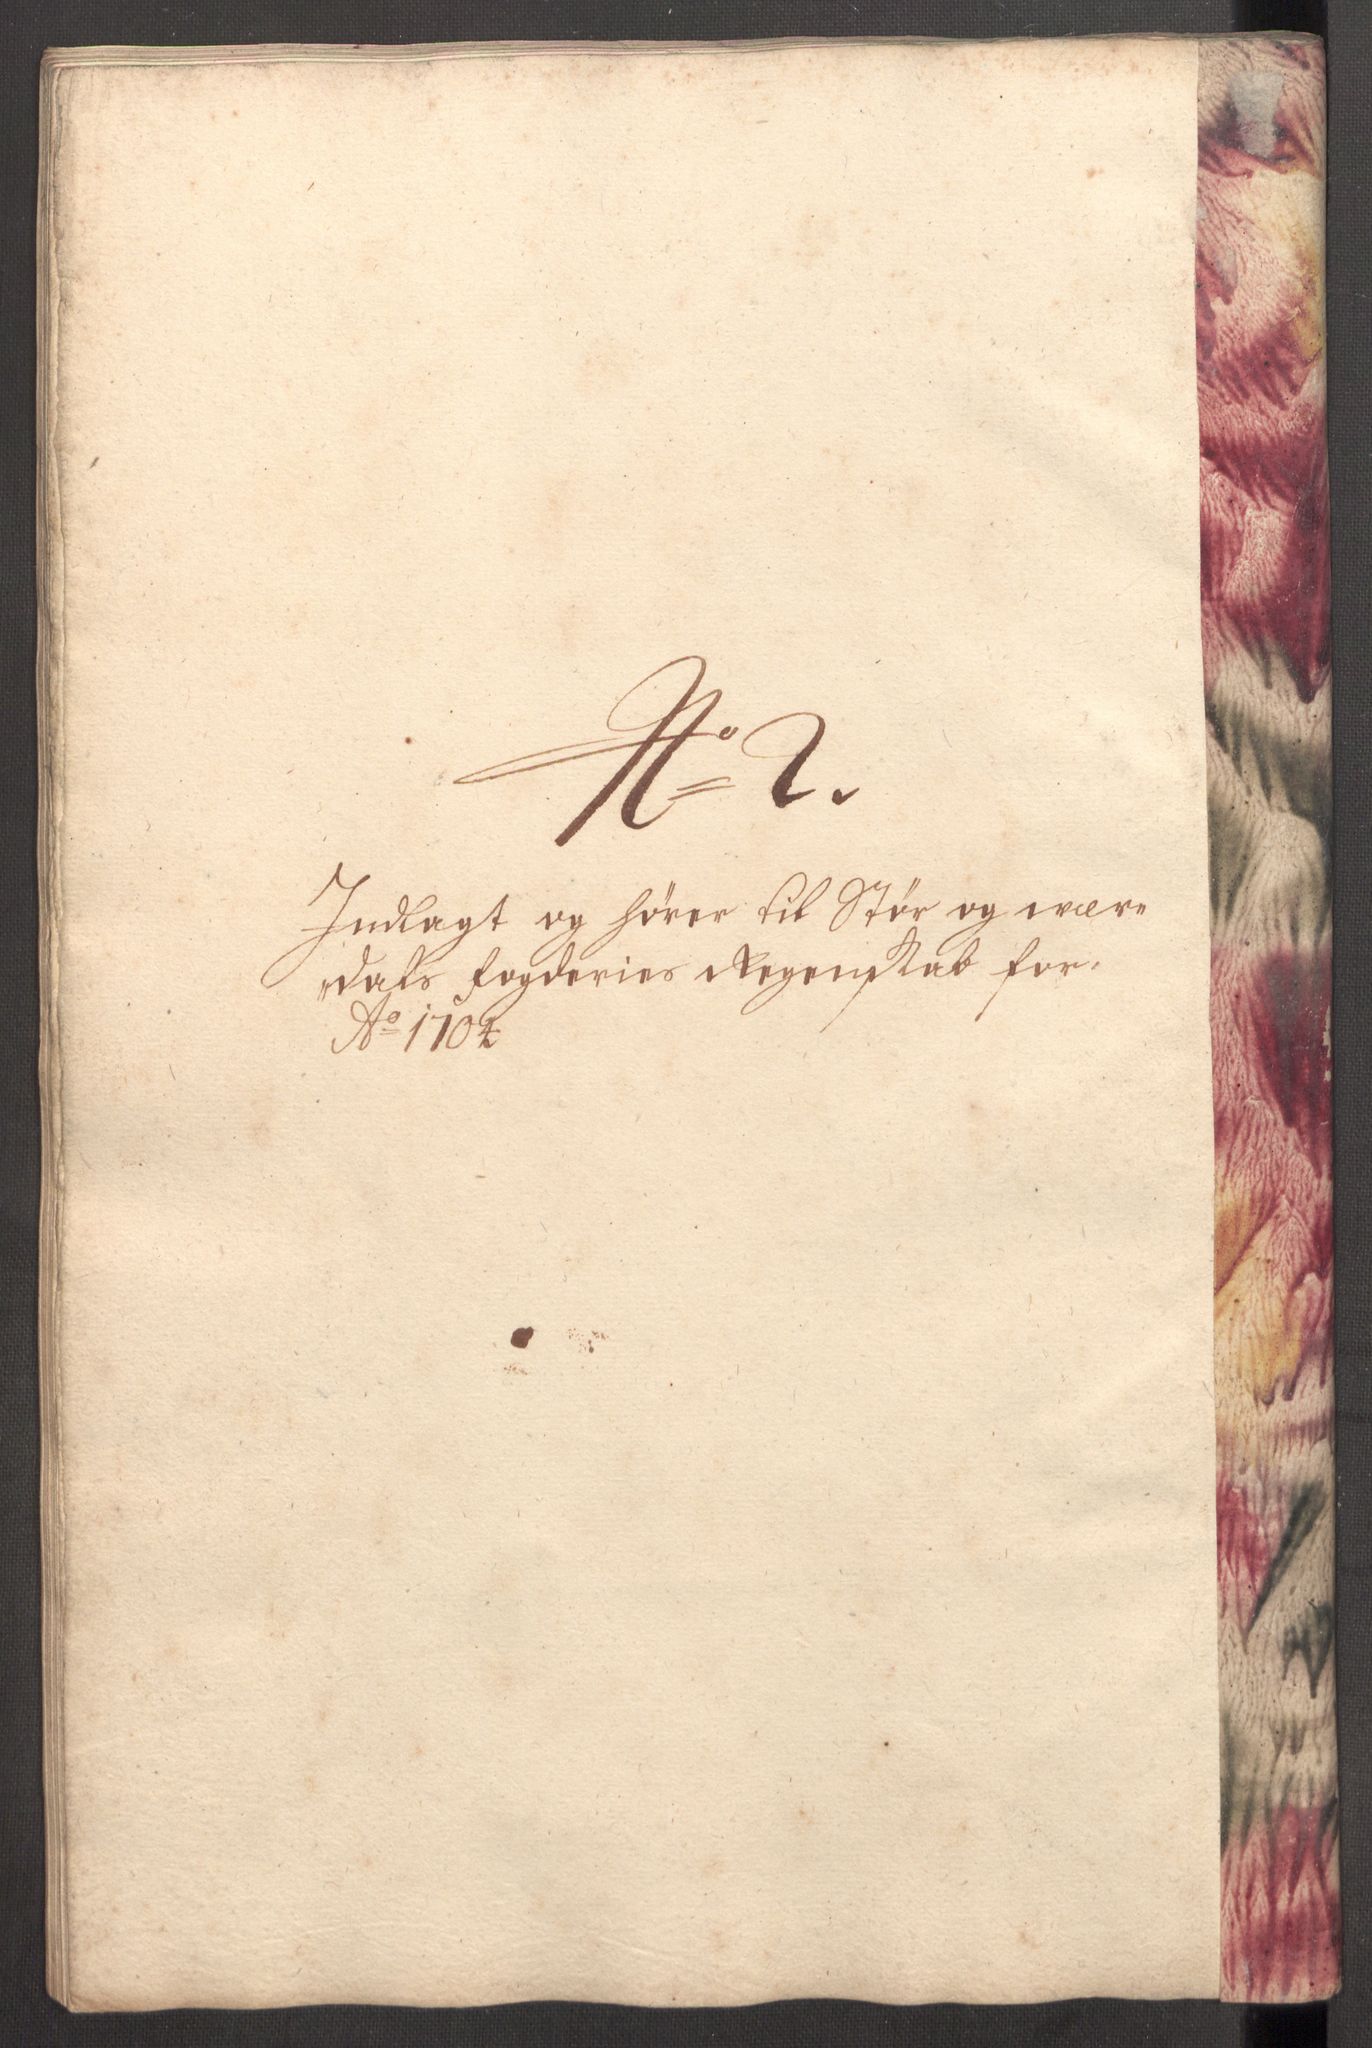 No 2.
Indlagt og hører til Stør og wær=
=dals fogderies Regenskab for.
Ao 1704